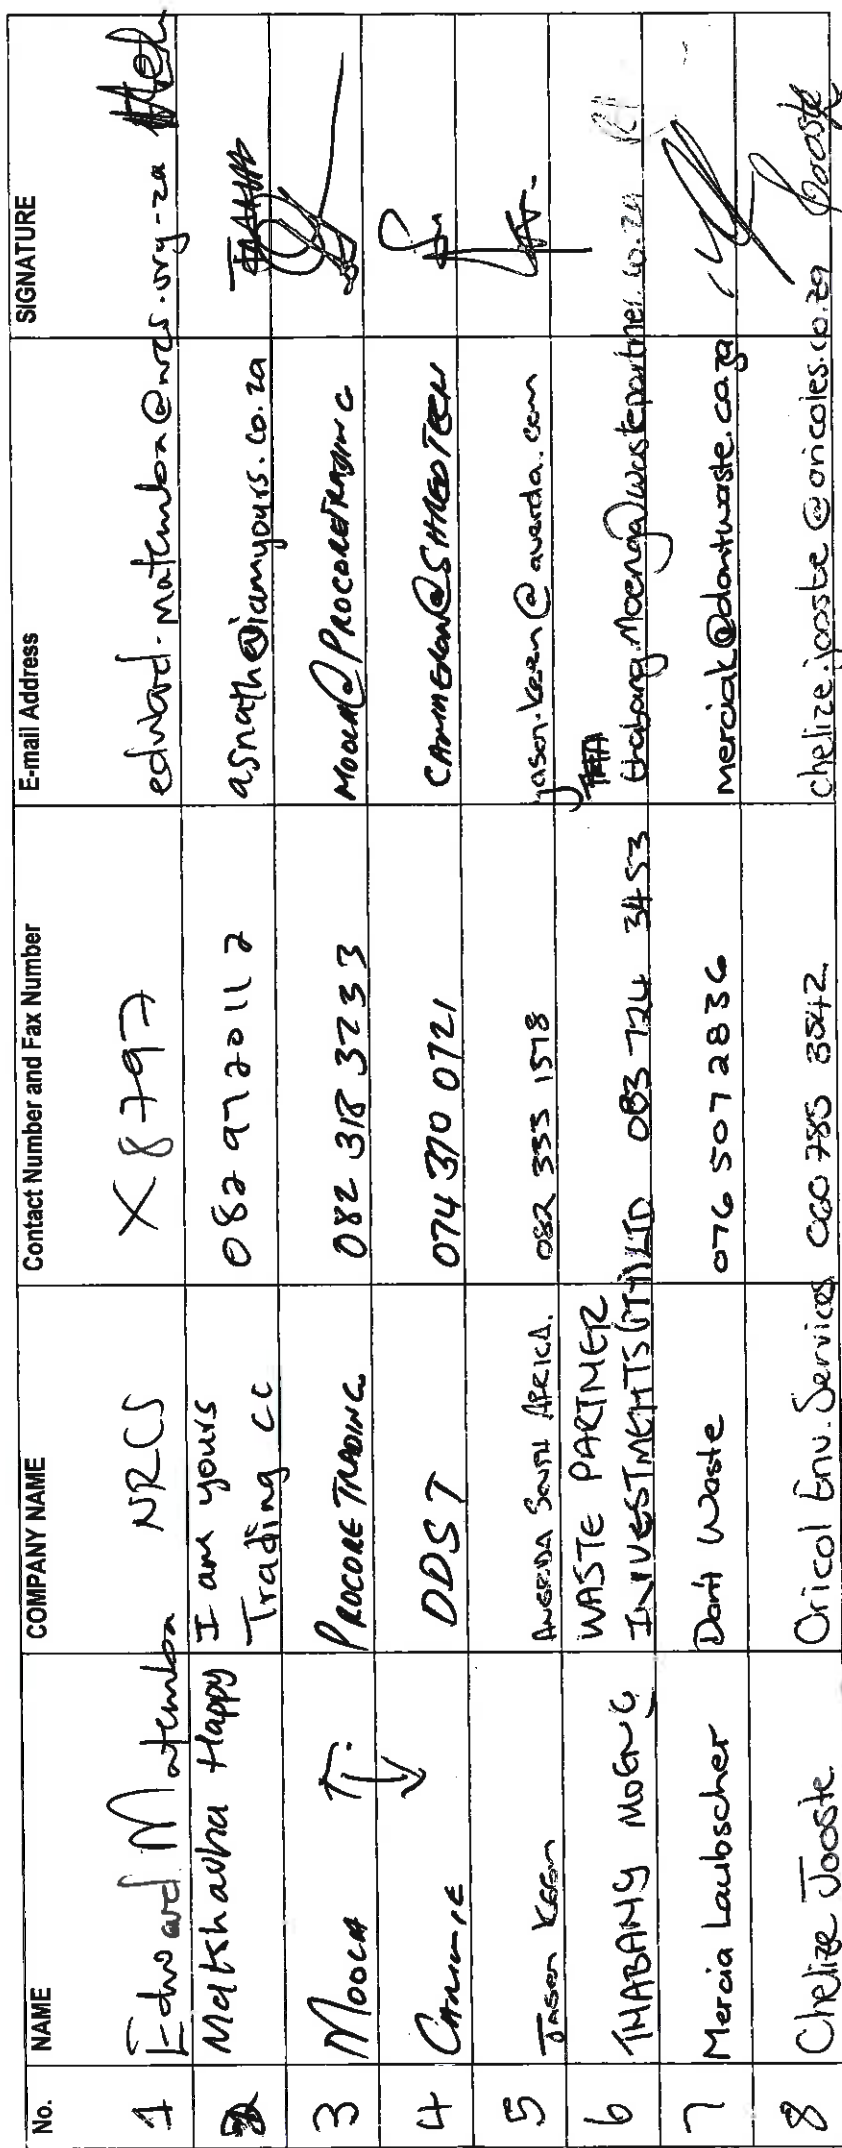 No. NAME COMPANY NAME Contact Number and Fax Number E-mail Address SIGNATURE
1 Edward Matemba NRCS X8797 edward.matemba@nrcs.org.za
Makhavha Happy I am yours Trading CC 0829720112 asnath@iamyours.co.za
3 Moola T. PROCORE TRADING 082 318 3233 MOOLA@PROCORETRADING
4 DDST 074 370 0721 CAMMERON@SHREDTECH
5 Jason Keen AVERDA SOUTH AFRICA. 082 333 1578 jason.keen@averda.com
6 THABANG MOENG WASTE PARTNER INVESTMENTS (PTY) LTD 083 724 3453 thabang.moeng@wastepartner.co.za
7 Mercia Laubscher Don't Waste 076 507 2836 merciak@dontwaste.co.za
8 Chelize Jooste Oricol Env. Services 060 785 8542 chelize.jooste@oricoles.co.za Jooste